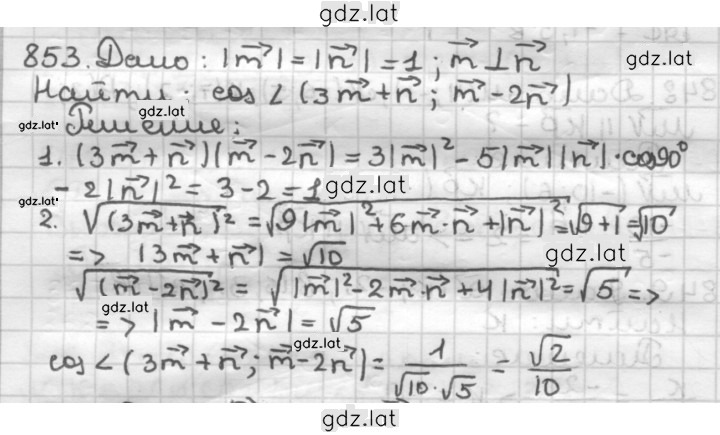 gdz.lat
853. Дано: |m⃗| = |n⃗| = 1; m⃗ ⊥ n⃗
gdz.lat
Найти: cos ∠ (3m⃗ + n⃗; m⃗ - 2n⃗)
gdz.lat
gdz.lat Решение:
1. (3m⃗ + n⃗)(m⃗ - 2n⃗) = 3|m⃗|² - 5|m⃗||n⃗| · cos90°
- 2|n⃗|² = 3 - 2 = 1 gdz.lat
gdz.lat
2. √(3m⃗ + n⃗)² = √9|m⃗|² + 6m⃗ · n⃗ + |n⃗|² = √9+1 = √10
=> |3m⃗ + n⃗| = √10 gdz.lat
√(m⃗ - 2n⃗)² = √|m⃗|² - 2m⃗ · n⃗ + 4|n⃗|² = √5 =>
gdz.lat
=> |m⃗ - 2n⃗| = √5
gdz.lat
cos ∠ (3m⃗ + n⃗; m⃗ - 2n⃗) = 1/(√10 · √5) = √2/10
gdz.lat
gdz.lat